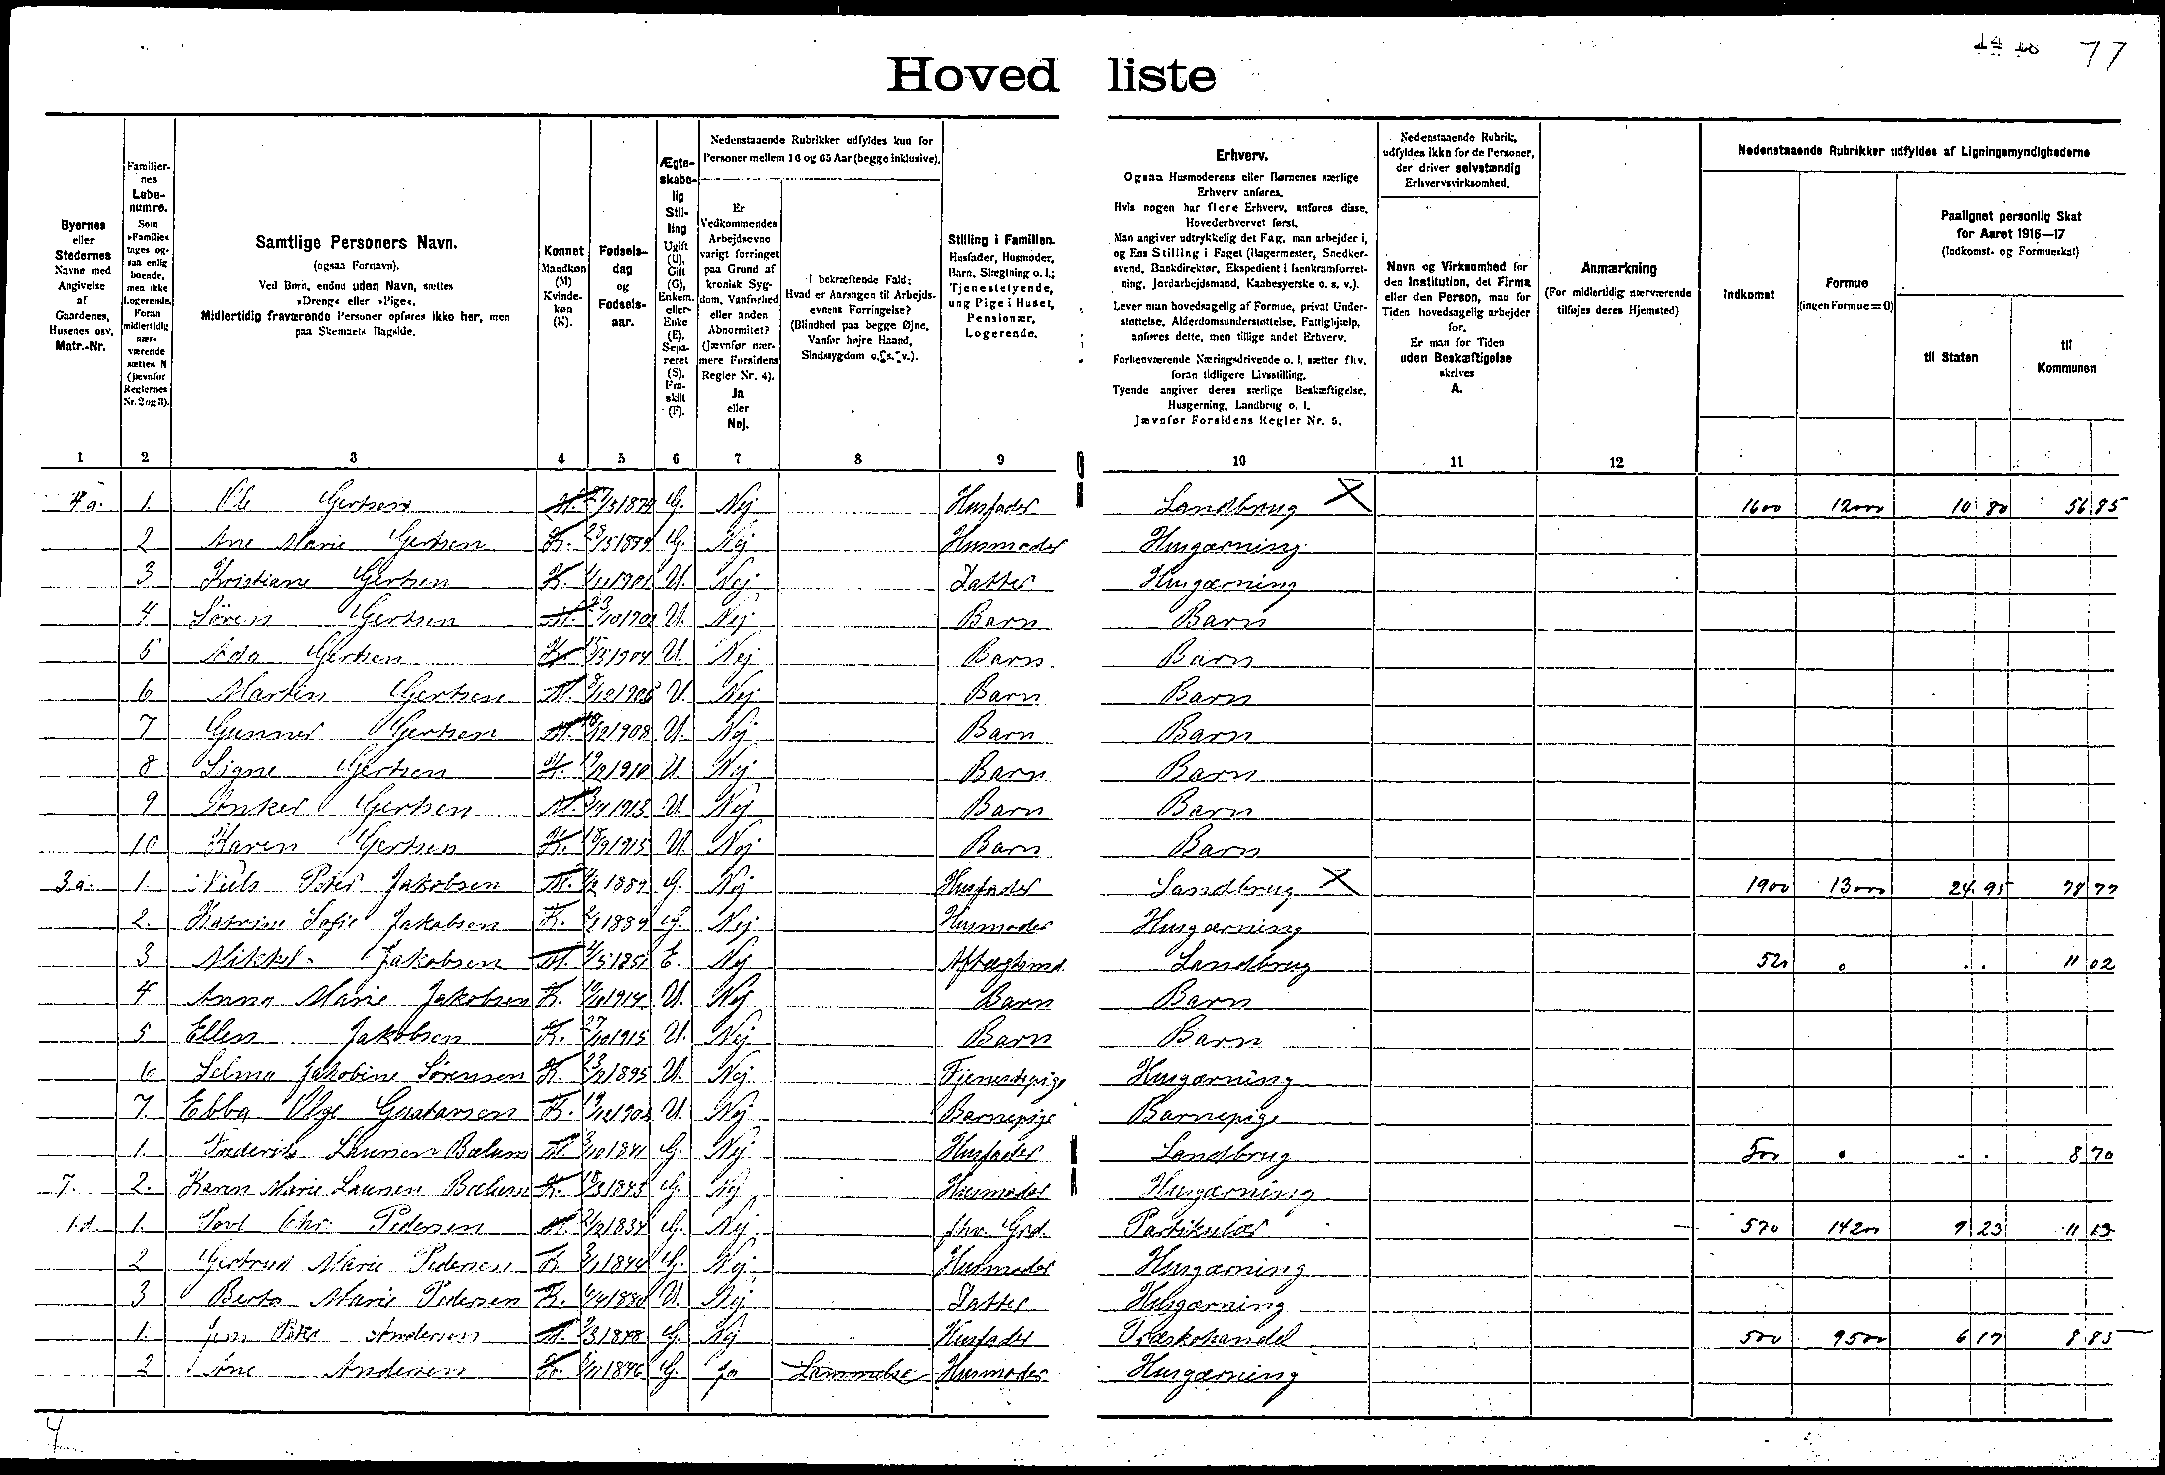 77
Hoved liste
Byernes eller Stedernes Navne med Angivelse af Gaardenes, Husenes osv. Matr.-Nr.
Familiernes Løbenumre. Som »Familie« tages ogsaa enlig boende, men ikke Logerende. Foran midlertidig nærværende sættes N (jævnfør Reglernes Nr. 2 og 3).
Samtlige Personers Navn.
(ogsaa Fornavn).
Ved Børn, endnu uden Navn, sættes »Dreng« eller »Pige«.
Midlertidig fraværende Personer opføres ikke her, men paa Skemaets Bagside.
Kønnet Mandkøn (M) Kvindekøn (K).
Fødselsdag og Fødselsaar.
Ægteskabelig Stilling Ugift (U), Gift (G), Enkem. eller Enke (E), Separeret (S), Fraskilt (F).
Nedenstaaende Rubrikker udfyldes kun for Personer mellem 16 og 65 Aar (begge inklusive).
Er Vedkommendes Arbejdsevne varigt forringet paa Grund af kronisk Sygdom, Vanførhed eller anden Abnormitet? (Jævnfør nærmere Forsidens Regler Nr. 4). Ja eller Nej.
I bekræftende Fald: Hvad er Aarsagen til Arbejdsevnens Forringelse? (Blindhed paa begge Øjne, Vanfør højre Haand, Sindssygdom o. s. v.).
Stilling i Familien. Husfader, Husmoder, Barn, Slægtning o. l.; Tjenestetyende, ung Pige i Huset, Pensionær, Logerende.
Erhverv.
Ogsaa Husmoderens eller Børnenes særlige Erhverv anføres.
Hvis nogen har flere Erhverv, anføres disse, Hovederhvervet først.
Man angiver udtrykkelig det Fag, man arbejder i, og Ens Stilling i Faget (Bagermester, Snedkersvend, Bankdirektør, Ekspedient i Isenkramforretning, Jordarbejdsmand, Kaabesyerske o. s. v.).
Lever man hovedsagelig af Formue, privat Understøttelse, Alderdomsunderstøttelse, Fattighjælp, anføres dette, men tillige andet Erhverv.
Forhenværende Næringsdrivende o. l. sætter fhv. foran tidligere Livsstilling.
Tyende angiver deres særlige Beskæftigelse, Husgerning, Landbrug o. l.
Jævnfør Forsidens Regler Nr. 5.
Nedenstaaende Rubrik, udfyldes ikke for de Personer, der driver selvstændig Erhvervsvirksomhed.
Navn og Virksomhed for den Institution, det Firma eller den Person, man for Tiden hovedsagelig arbejder for.
Er man for Tiden uden Beskæftigelse skrives A.
Anmærkning
(For midlertidig nærværende tilføjes deres Hjemsted)
Nedenstaaende Rubrikker udfyldes af Ligningsmyndighederne
Indkomst
Formue (ingen Formue = 0)
Paalignet personlig Skat for Aaret 1916—17 (Indkomst- og Formueskat)
til Staten
til Kommunen
1 2 3 4 5 6 7 8 9 10 11 12
4 a. 1. Ole Gertsen M. 1874 G. Nej Husfader Landbrug X 1600 12000 10 80 56 85
2 Ane Marie Gertsen K. G. Nej Husmoder Husgærning
3 Kristiane Gertsen K. 1901 U. Nej Datter Husgærning
4 Søren Gertsen M. U. Nej Barn Barn
5 Ada Gertsen K. 1904 U. Nej Barn Barn
6 Martin Gertsen M. U. Nej Barn Barn
7 Gunner Gertsen M. 1908 U. Nej Barn Barn
8 Signe Gertsen K. 1910 U. Nej Barn Barn
9 Gertsen M. 1913 U. Nej Barn Barn
10 Karen Gertsen K. 1915 U. Nej Barn Barn
3 a. 1. Niels Peter Jakobsen M. G. Nej Husfader Landbrug X 1900 13000 24 95 78 77
2. Katrine Sofie Jakobsen K. 1889 G. Nej Husmoder Husgærning
3 Mikkel Jakobsen M. E. Nej Landbrug 520 0 . . 11 02
4 Anna Marie Jakobsen K. 1914 U. Nej Barn Barn
5 Ellen Jakobsen K. 27/10 1915 U. Nej Barn Barn
6 Selma Jakobine Sørensen K. 1895 U. Nej Tjenestepige Husgærning
7. Ebba Olga Gustavsen K. U. Nej Barnepige Barnepige
1. Frederik Laursen Bælum M 1841 G. Nej Husfader Landbrug 500 0 . . 8 70
7. 2. Karen Marie Laursen Bælum K. G. Nej Husmoder Husgærning
1 d. 1. Povl Chr. Pedersen M. 1834 G. Nej fhv. Grd. Partikulær 570 14200 9 23 11 13
2 Gertrud Marie Pedersen K 1844 G. Nej Husmoder Husgærning
3 Berta Marie Pedersen K. 1880 U. Nej Datter Husgærning
1. Jens Peter Andersen M. G. Nej Husfader Træskohandel 500 9500 6 17 8 85
2 Andersen K. 1846 G. Ja Lammelse Husmoder Husgærning
4